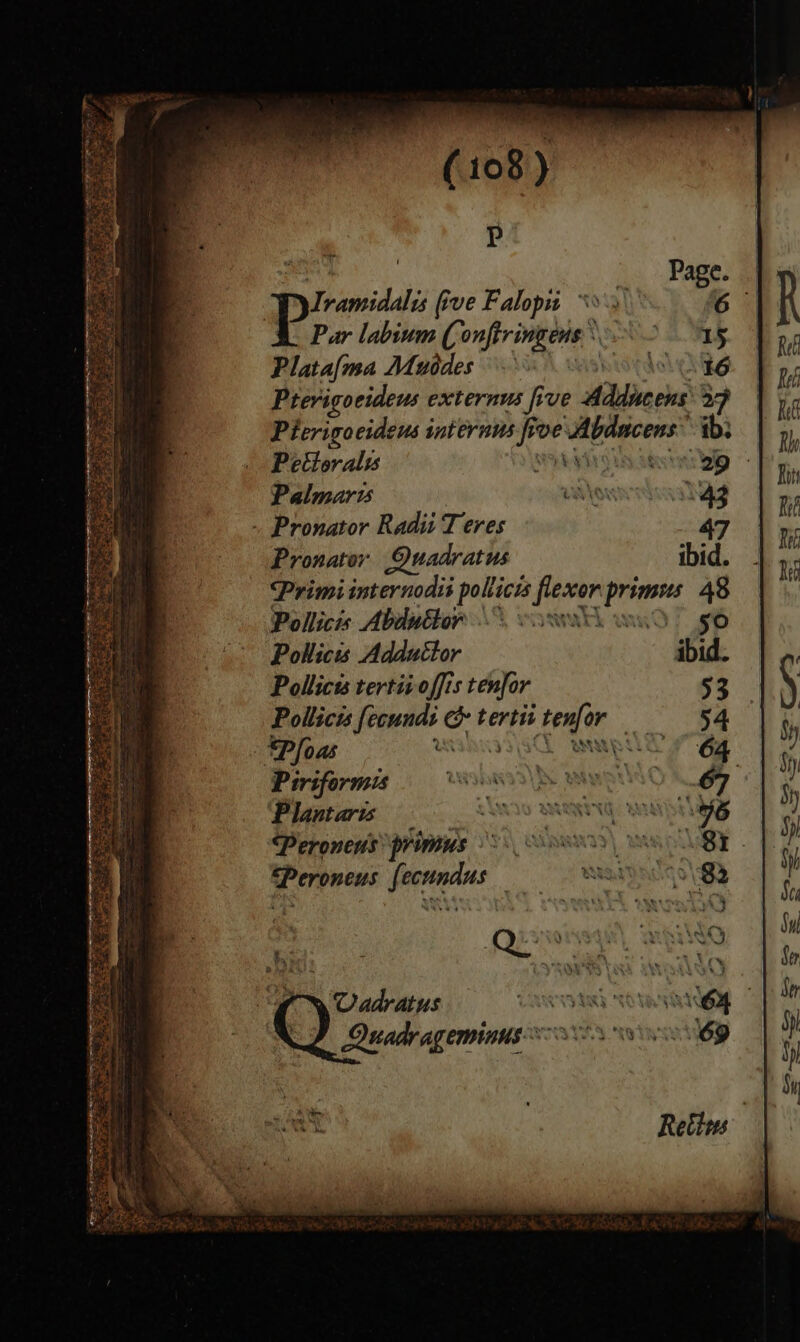 (108)
P
Page.
PIramidalis ſive Falopii 6
Par labium Conſtringens 15
Plataſma Muödes 16
Pterigoeideus externus ſive Adducens 27
Pterigoeideus internus ſive Abducens ib.
Pectoralis 29
Palmaris 43
Pronator Radii Teres 47
Pronator Quadratus ibid.
Primi internodii pollicis flexor primus 48
Pollicis Abductor 50
Pollicis Adductor ibid.
Pollicis tertii oſſis tenſor 53
Pollicis ſecundi & tertii tenſor 54
Pſoas 64
Piriformis 67
Plantaris 76
Peroneus primus 81
Peroneus ſecundus 82
Q
QUadratus 64
Quadrageminus 69
Rectus